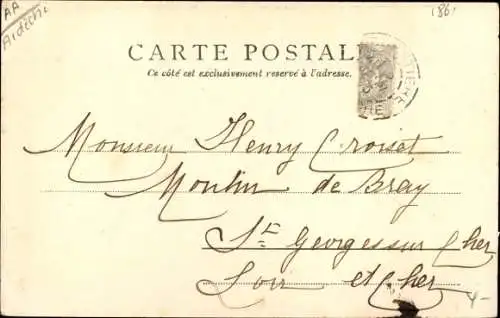 AA
Ardèche
(86)
CARTE POSTALE
Ce côté est exclusivement reservé à l'adresse.
Monsieur Henry Croizat
Moulin de Bray
St Georges sur Cher
Loir et Cher
4-